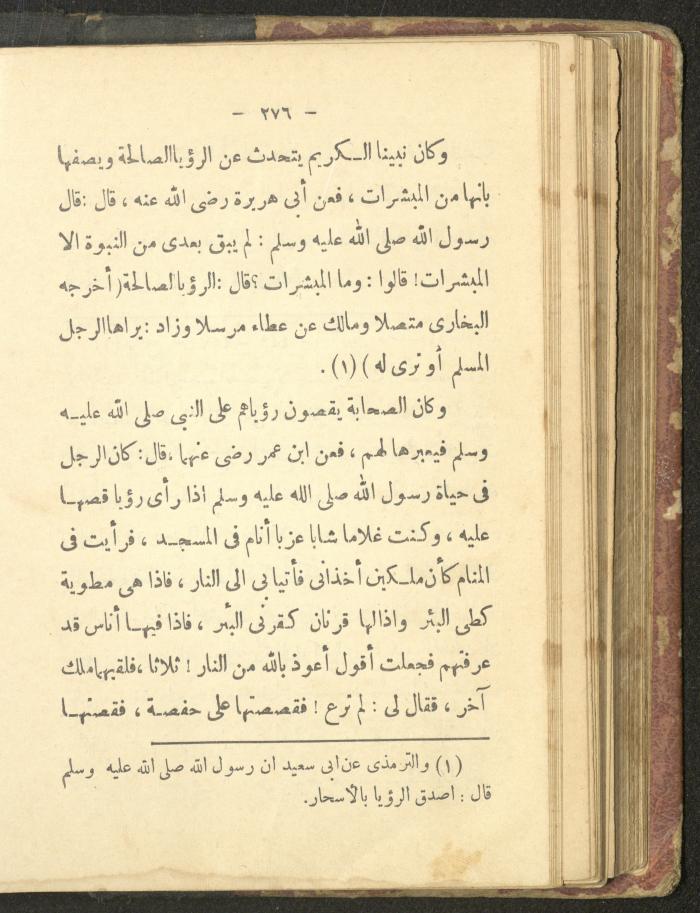 — ٢٧٦ —
وكان نبينا الكريم يتحدث عن الرؤيا الصالحة ويصفها
بانها من المبشرات ، فعن أبى هريرة رضى الله عنه ، قال : قال
رسول الله صلى الله عليه وسلم : لم يبق بعدى من النبوة الا
المبشرات ! قالوا : وما المبشرات ؟ قال : الرؤيا لصالحة ( أخرجه
البخارى متصلا ومالك عن عطاء مرسلا وزاد : يراها الرجل
المسلم أو ترى له ) (١) .
وكان الصحابة يقصون رؤياهم على النبى صلى الله عليه
وسلم فيعبرها لهم ، فعن ابن عمر رضى عنهما ، قال : كان الرجل
فى حياة رسول الله صلى الله عليه وسلم اذا رأى رؤيا قصها
عليه ، وكنت غلاما شابا عزبا أنام فى المسجد ، فرأيت فى
المنام كأن ملكين أخذانى فأتيا بى الى النار ، فاذا هى مطوية
كطى البئر واذا لها قرنان كقرنى البئر ، فاذا فيها أناس قد
عرفتهم فجعلت أقول أعوذ بالله من النار ! ثلاثا ، فلقيهما ملك
آخر ، فقال لى : لم ترع ! فقصصتها على حفصة ، فقصتها
(١) والترمذى عن ابى سعيد ان رسول الله صلى الله عليه وسلم
قال : اصدق الرؤيا بالأسحار .